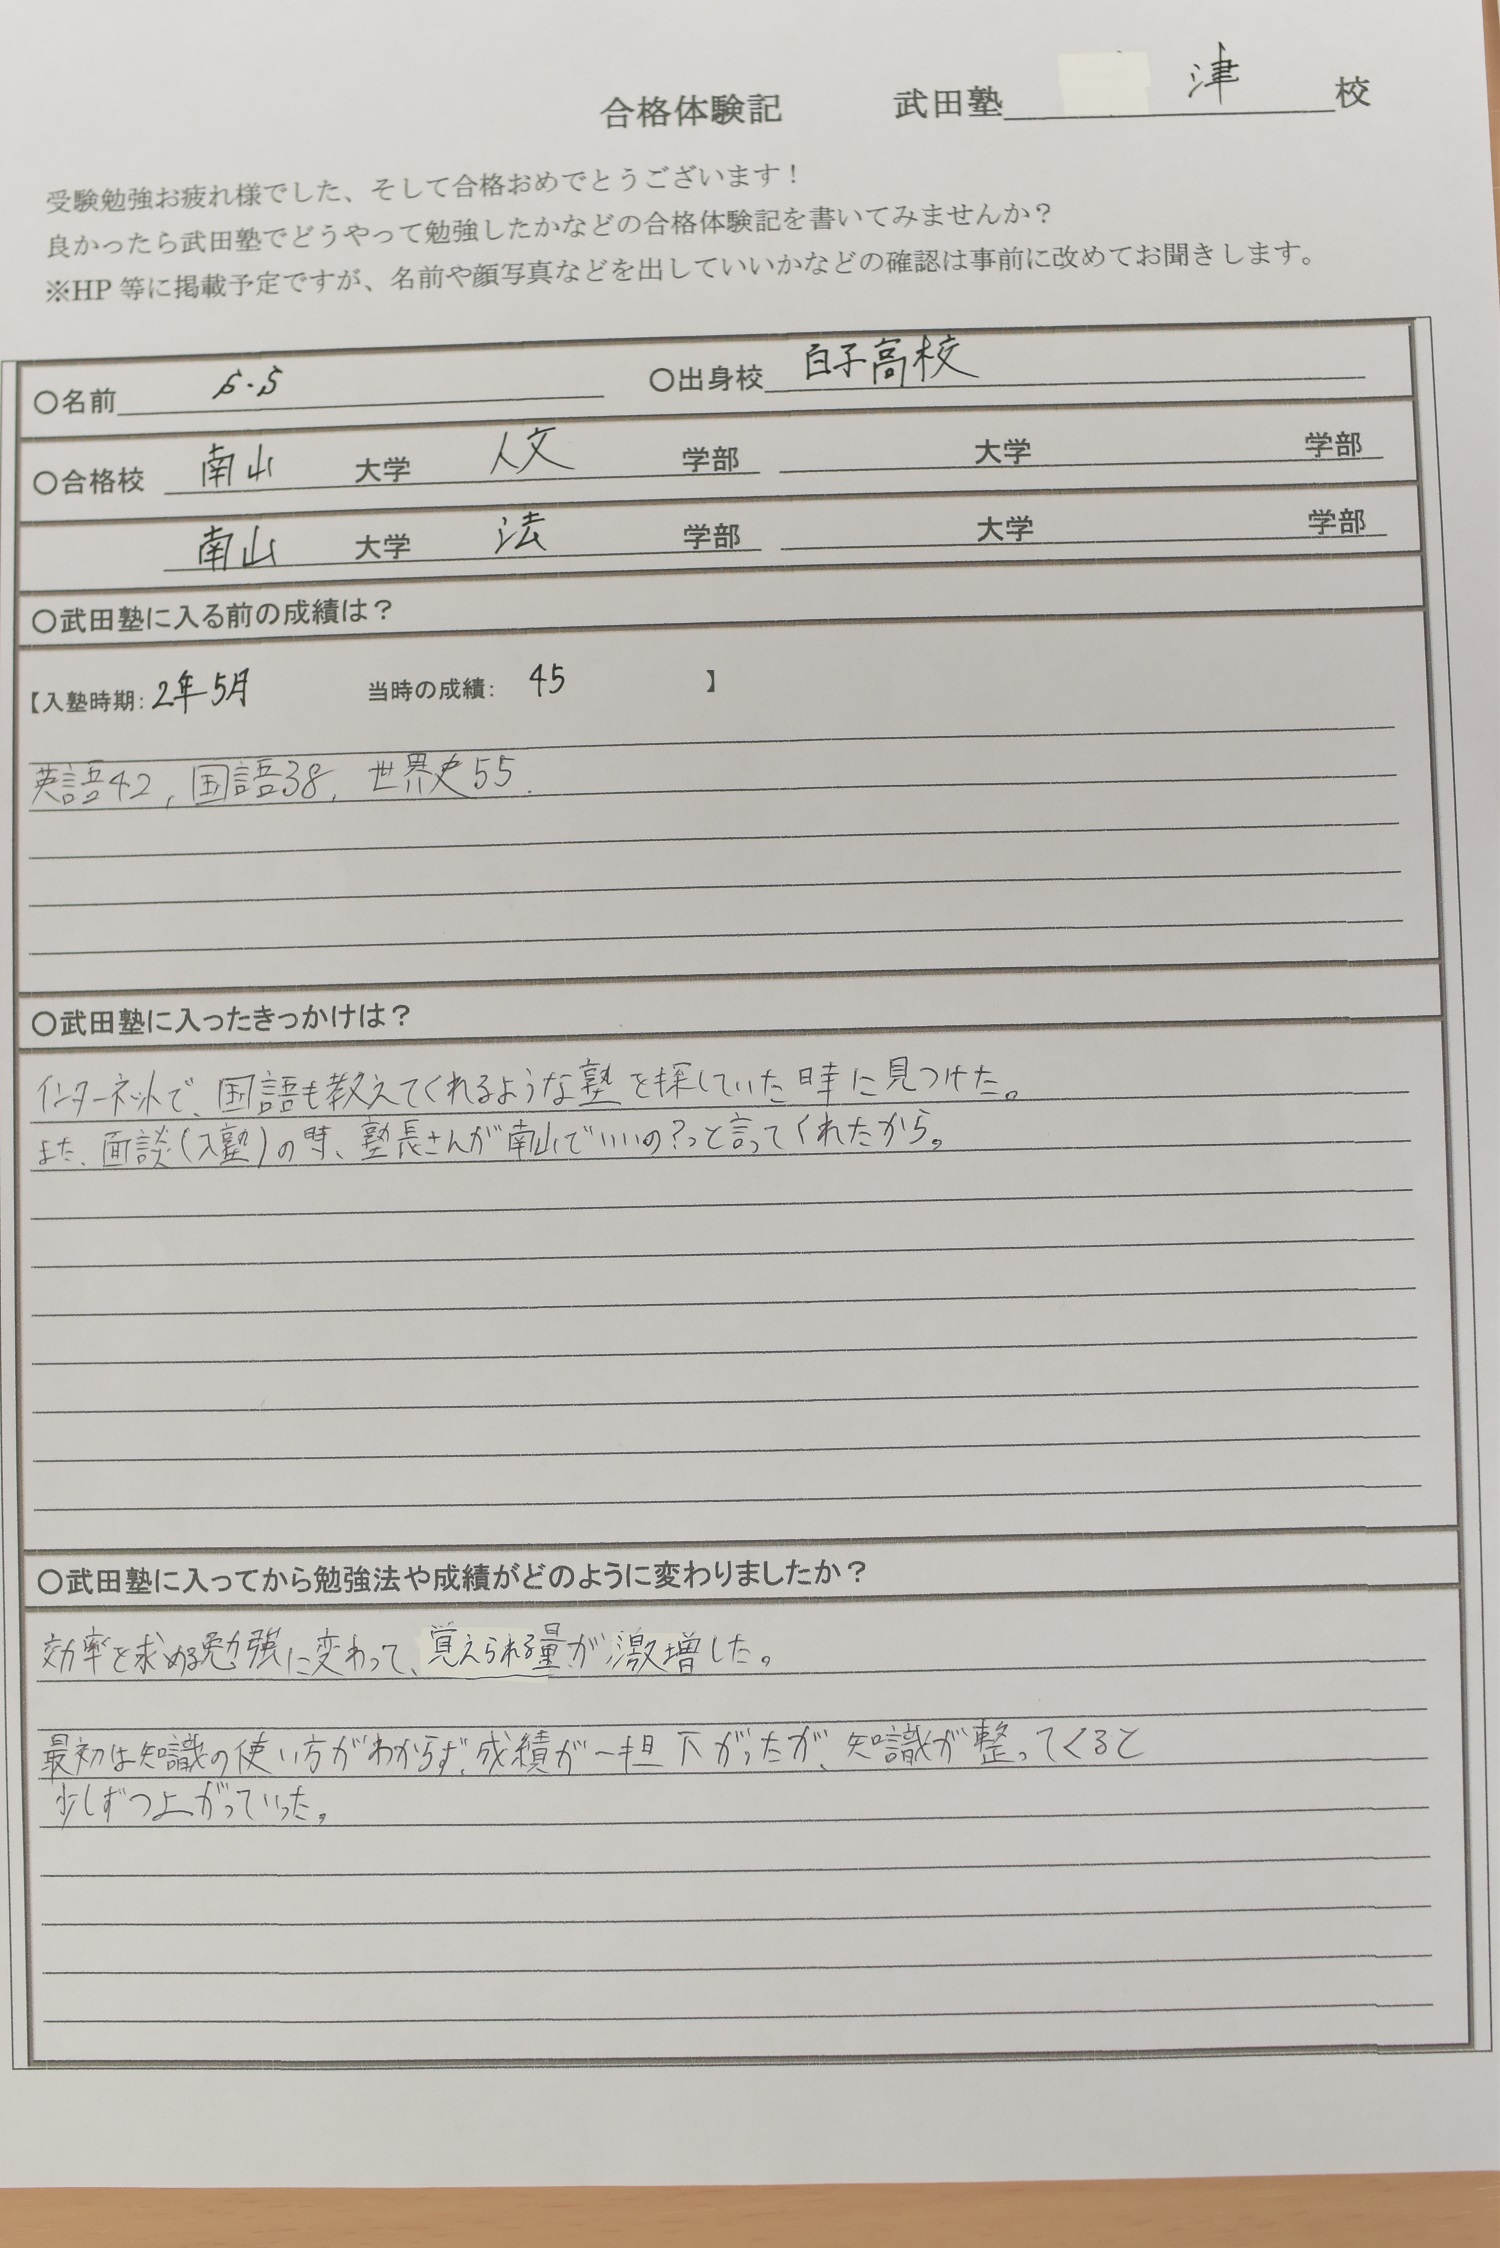 合格体験記 武田塾 津 校
受験勉強お疲れ様でした、そして合格おめでとうございます！
良かったら武田塾でどうやって勉強したかなどの合格体験記を書いてみませんか？
※HP 等に掲載予定ですが、名前や顔写真などを出していいかなどの確認は事前に改めてお聞きします。
○名前 ○出身校 白子高校
○合格校 南山 大学 人文 学部 大学 学部
南山 大学 法 学部 大学 学部
○武田塾に入る前の成績は？
【入塾時期：2年5月 当時の成績： 45 】
英語42, 国語38, 世界史55.
○武田塾に入ったきっかけは？
インターネットで、国語も教えてくれるような塾を探していた時に見つけた。
また、面談(入塾)の時、塾長さんが南山でいいの?っと言ってくれたから。
○武田塾に入ってから勉強法や成績がどのように変わりましたか？
効率を求める勉強に変わって、覚えられる量が激増した。
最初は知識の使い方がわからず、成績が一担下がったが、知識が整ってくると
少しずつ上がっていった。